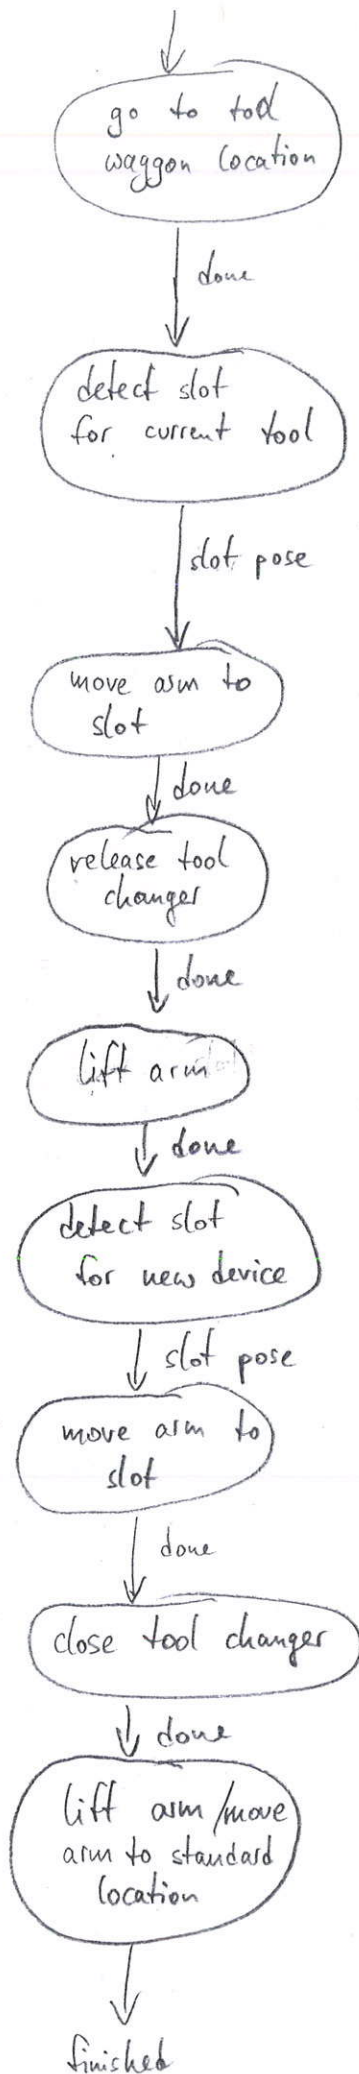 go to tool
waggon location
done
detect slot
for current tool
slot pose
move arm to
slot
done
release tool
changer
done
lift arm
done
detect slot
for new device
slot pose
move arm to
slot
done
close tool changer
done
lift arm/move
arm to standard
location
finished